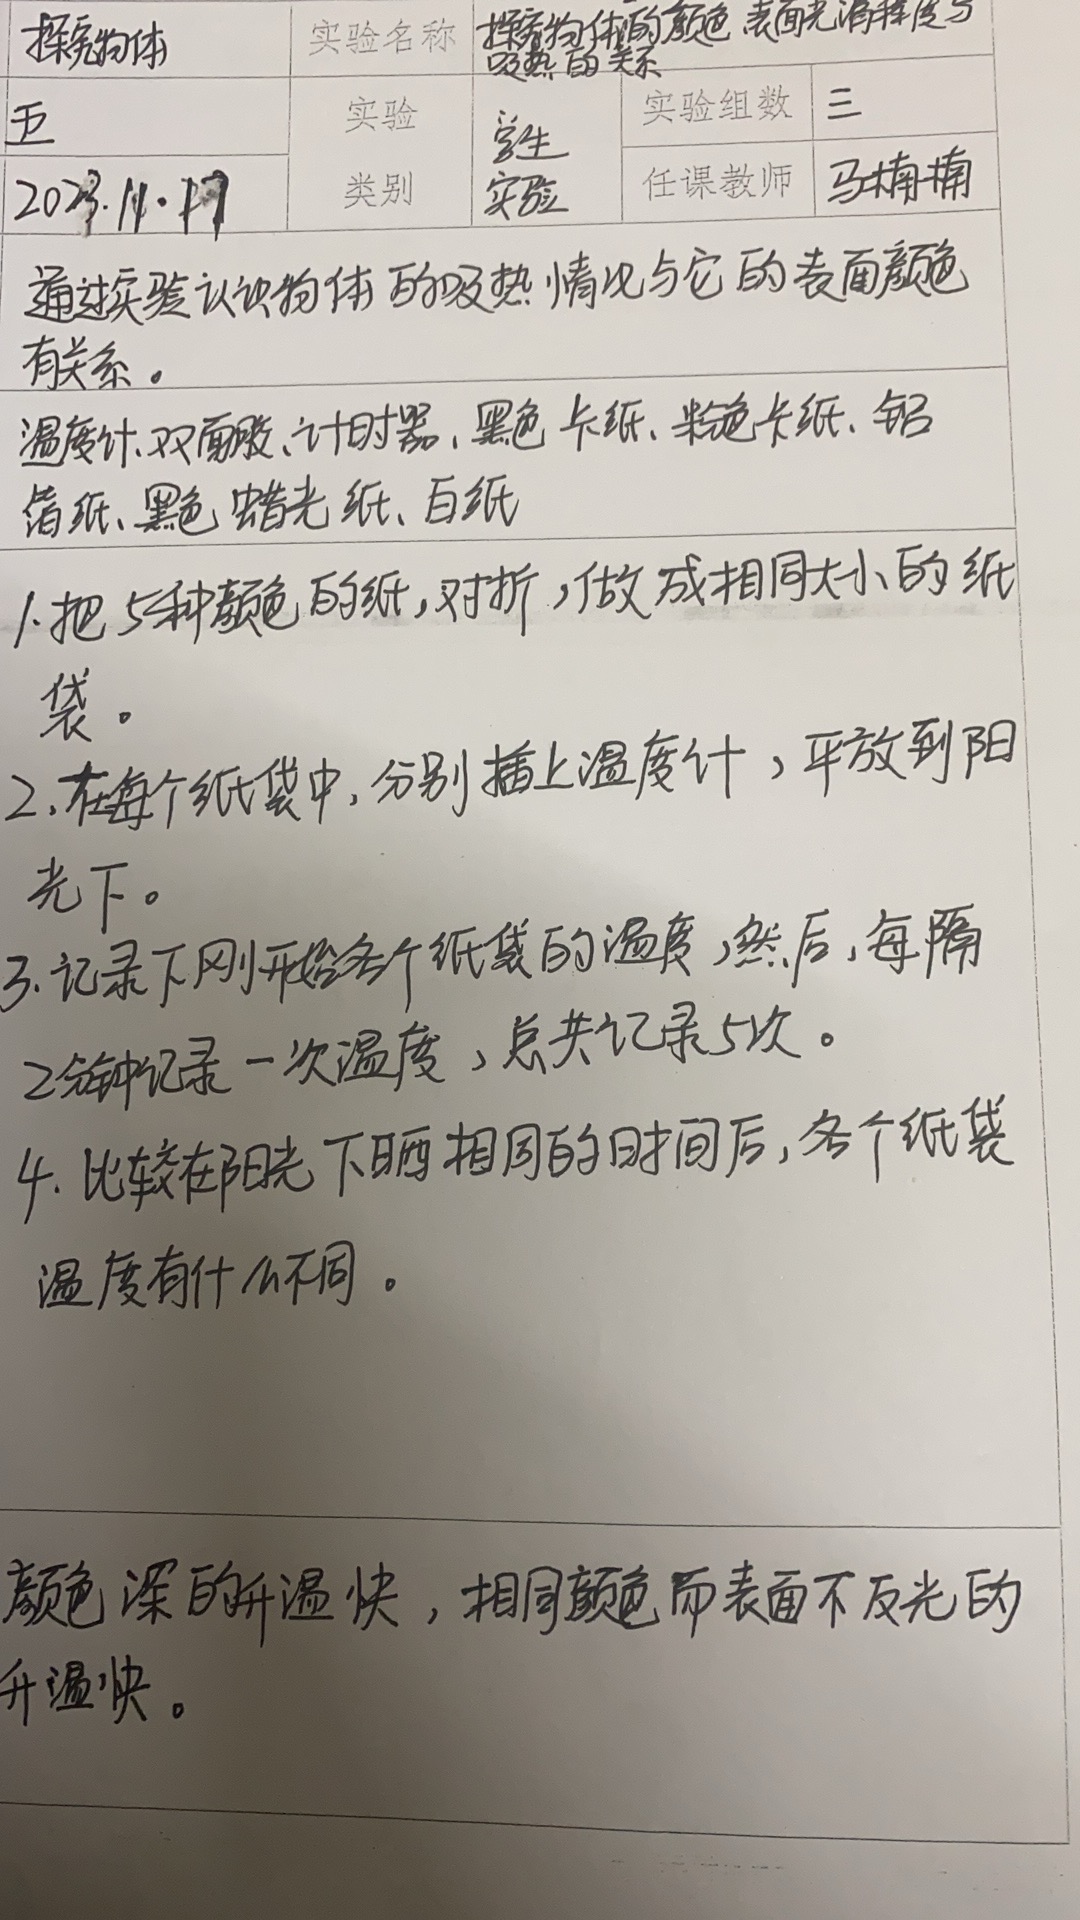 探究物体
实验名称
探究物体的颜色、表面光滑程度与
吸热的关系
五
实验
类别
学生
实验
实验组数
三
2023.11.17
任课教师
马楠楠
通过实验认识物体的吸热情况与它的表面颜色
有关系。
温度计、双面胶、计时器、黑色卡纸、粉色卡纸、铝
箔纸、黑色蜡光纸、白纸
1.把5种颜色的纸,对折,做成相同大小的纸
袋。
2.在每个纸袋中,分别插上温度计,平放到阳
光下。
3.记录下刚开始各个纸袋的温度,然后,每隔
2分钟记录一次温度,总共记录5次。
4.比较在阳光下晒相同的时间后,各个纸袋
温度有什么不同。
颜色深的升温快,相同颜色而表面不反光的
升温快。